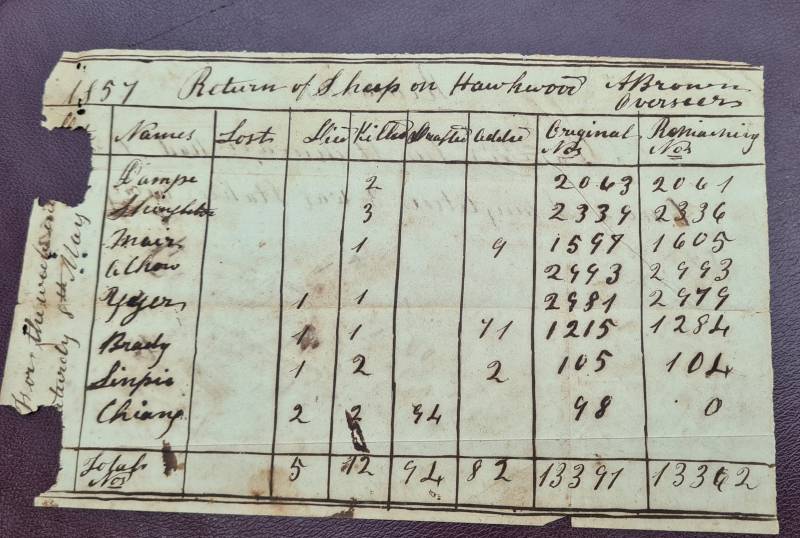 1857 Return of Sheep on Hawkwood A Brown
Overseer
Names Lost Died Killed Drafted Added Original Nos Remaining Nos
Lampe 2 2063 2061
3 2339 2336
Mair 1 9 1597 1605
Ahow 2993 2993
1 1 2981 2979
Brady 1 1 71 1215 1284
Sinpio 1 2 2 105 104
Chiang 2 2 94 98 0
Totals Nos 5 12 94 82 13391 13362
For the week ending
Saturday 8th May